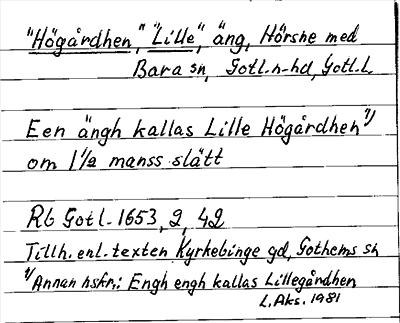 "Högårdhen," "Lille", äng, Hörsne med
Bara sn, Gotl.n-hd, Gotl.L.
Een ängh kallas Lille Högårdhen 1/
om 1 1/2 manss slått
Rb Gotl. 1653, 2, 42
Tillh. enl. texten Kyrkebinge gd, Gothems sn
1/ Annan hskr.: Engh engh kallas Lillegårdhen
L.Aks. 1981